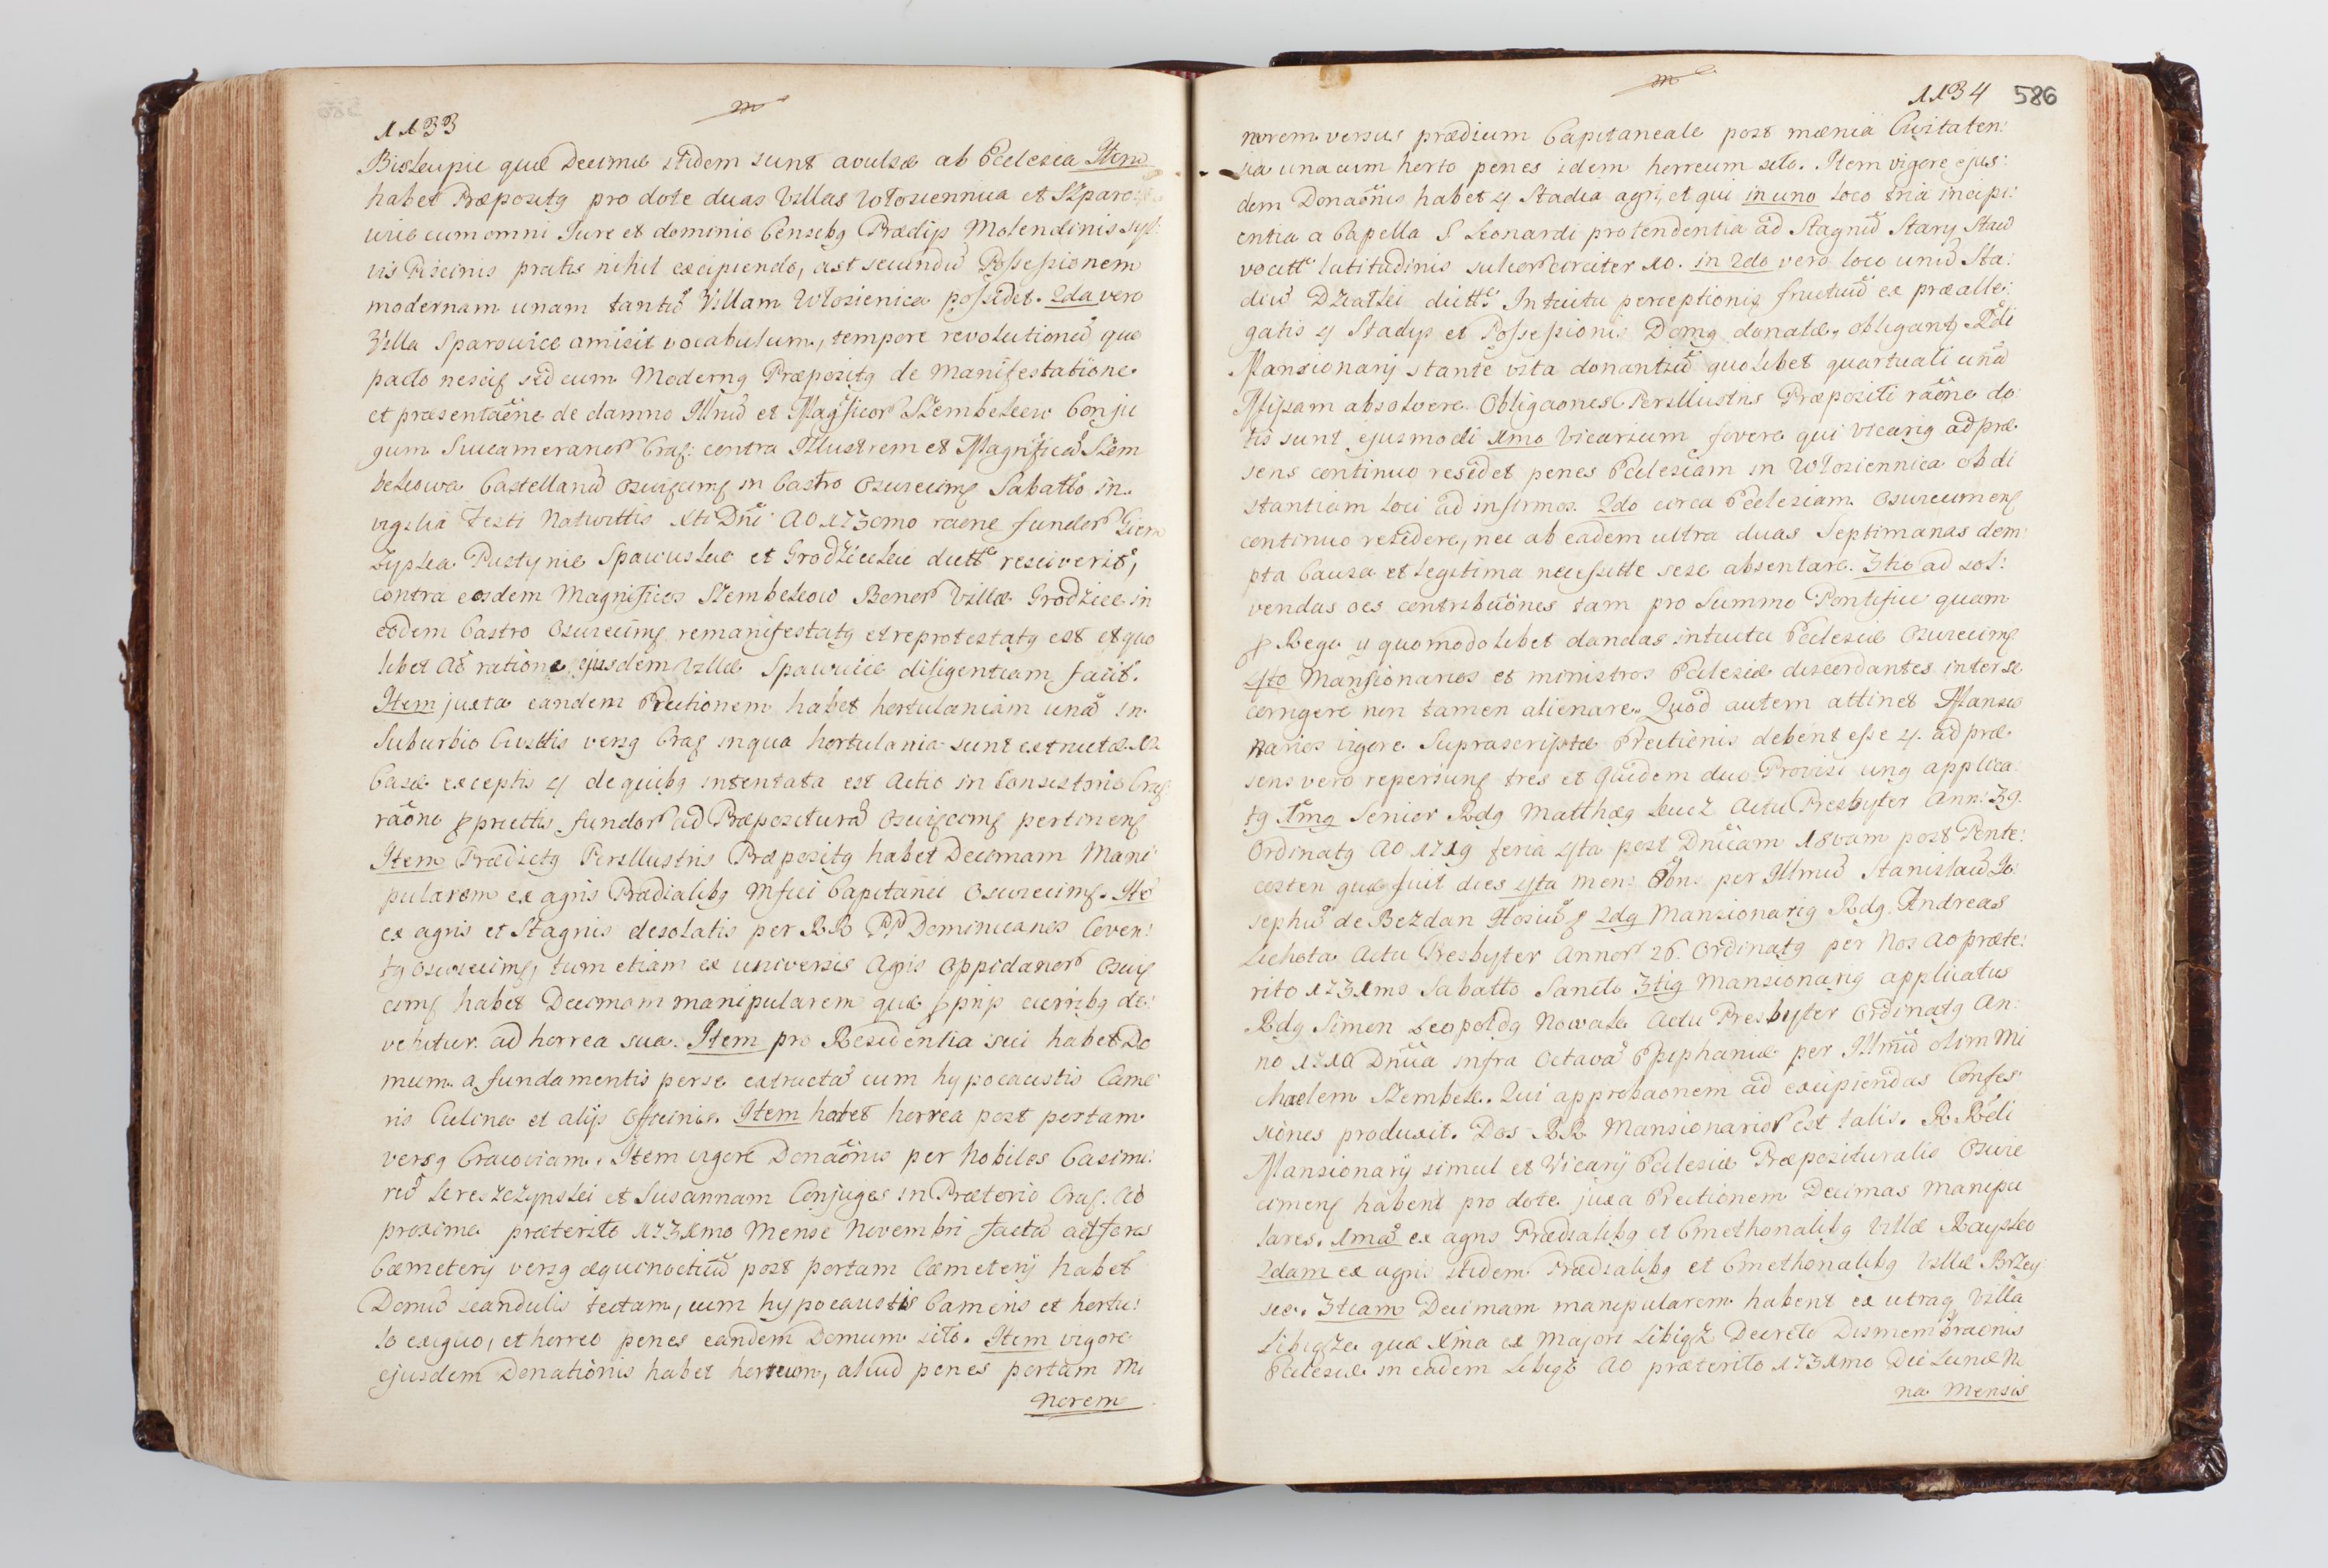 1133
Biskupie quæ Decimæ itidem sunt avulsæ ab Ecclesia Item
habet Præpositq pro dote duas Villas Włosiennica et Szparo
wice cum omni Jure et dominio Censibq Prædijs Molendinis syl:
vis Piscinis pratis nihil excipiendo, ast secundū Possessionem
modernam unam tantū Villam Włosienica possidet. 2da vero
Villa Sparowice amisit vocabulum, tempore revolutionū quo
pacto nescit sed cum Modernq Præpositq de Manifestatione
et præsentaone de damno Illrīū et Magficor Szembekow Conju
gum Succameranor Crac: contra Illustrem et Magnificū Szem
bekowa Castellanū Oswiecim in Castro Oswiecim Sabatto in
vigilia Festi Nativittis Xti Dni Ao 1730mo raone fundor
Pustynie Spawuskie et Grodzieckie dictt resciverit,
contra eosdem Magnificos Szembekow Bonor Villæ Grodziec in
eodem Castro Oswiecim remanifestatq et reprotestatq est et quo
libet Ao ratione ejusdem Villæ Spawicie diligentiam facit.
Item juxta eandem Erectionem habet hortulaniam unā in
Suburbio Civittis versq Crac in qua hortulania sunt extructæ 12
Casæ exceptis 4 de quibq intentata est Actio in Consistorio Crac
raone fundor ad Præpositurā Oswiecim pertinen
Item Prædictq Perillustris Præpositq habet Decimam Mani
pularem ex agris Prædialibq Mfici Capitanei Oswiecim. Ite
ex agris et Stagnis desolatis per RR PP Dominicanos Coven:
tq Oswiecim, tum etiam ex universis Agris Oppidanor Oswie
cim habet Decimam manipularem quæ curribq de:
vehitur ad horrea sua. Item pro Residentia sui habet Do
mum a fundamentis per se extructā cum hypocaustis Came
ris Culina et alijs Officinis. Item habet horrea post portam
versq Cracoviam. Item vigore Donaonis per Nobiles Casimi:
rū Lereszczynski et Susannam Conjuges in Prætorio Crac: Ao
proxime præterito 1731mo Mense Novembri factā ad fores
Cæmeterij versq æquinoctiū post portam Cæmeterij habet
Domū scandulis tectam, cum hypocaustis Cameris et hortu:
lo exiguo, et horreo penes eandem Domum sito. Item vigore
ejusdem Donationis habet horreum, aliud penes portam Mi
norem
1134 586
norem versus prædium Capitaneale post mænia Civitaten:
sia una cum horto penes idem horreum sito. Item vigore ejus:
dem Donaonis habet 4 Stadia agri, et qui in uno loco tria incipi:
entia a Capella S Leonardi protendentia ad Stagnū Stary Staw
vocitt latitudinis sulcor circiter 10. in 2do vero loco unū Sta:
diū Dziatki dictt. Intuitu perceptionis fructuū ex præalle:
gatis 4 Stadijs et Possessionis Domq donatæ, obligantq Rdi
Mansionarij stante vita donantiū quolibet quartuali unā
Missam absolvere. Obligaones Perillustris Præpositi raone do:
tis sunt ejusmodi 1mo Vicarium fovere qui vicariq ad præ
sens continuo residet penes Ecclesiam in Włosiennica ob di
stantiam loci ad infirmos. 2do circa Ecclesiam Oswiecimen
continuo residere, nec ab eadem ultra duas Septimanas dem
pta Causa et legitima necessitte sese absentare. 3tio ad sol:
vendas oes contributiones tam pro Summo Pontifice quam
p Rege u quomodolibet dandas intuitu Ecclesiæ Oswiecim
4to Mansionarios et ministros Ecclesiæ discordantes inter se
corrigere non tamen alienare. Quod autem attinet Mansio
narios vigore Suprascriptæ Erectionis debent esse 4. ad præ
sens vero reperiunt tres et quidem duo Provisi unq applica:
tq 1mq Senior Rdq Matthæq Kucz Actu Presbyter Ann: 39.
Ordinatq Ao 1719 feria 4ta post Dnicam 18vam post Pente:
costen quæ fuit dies 4ta Men: 8bris per Illmū Stanislaū Jo:
sephū de Bezdan Hosiū 2dq Mansionariq Rdq Andreas
Lichota Actu Presbyter Annor 26. Ordinatq per Nos Ao præte:
rito 1731mo Sabatto Sancto 3tiq Mansionariq applicatus
Rdq Simon Leopoldq Nowak Actu Presbyter Ordinatq An:
no 1710 Dnica infra Octavā Epiphaniæ per Illmū olim Mi
chaelem Szembek. Qui approbaonem ad excipiendas Confes
siones produxit. Dos RR Mansionarior est talis. RRdi
Mansionarij simul et Vicarij Ecclesiæ Præposituralis Oswie
cimen habent pro dote juxa Erectionem Decimas manipu
lares. 1mā ex agris Prædialibq et Cmethonalibq Villæ Raysko
2dam ex agris itidem Prædialibq et Cmethonalibq Villæ Brzez
ice. 3tiam Decimam manipularem habent ex utraq Villa
Libigze quæ Xma ex Majori Libigz Decreto Dismembraonis
Ecclesiæ in eadem Libigz Ao præterito 1731mo Die Lunæ
na Mensis